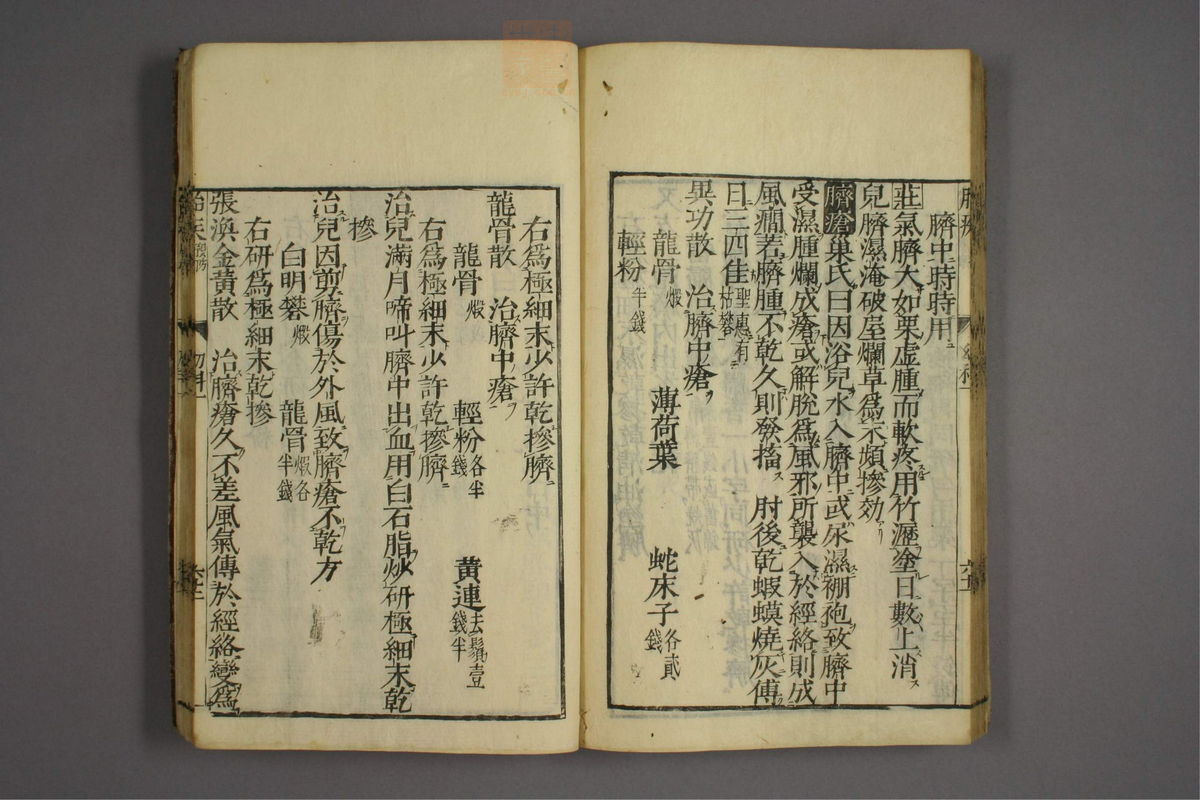 臍中時時用
莊氣臍大如栗虛腫而軟疼用竹瀝塗日數上消
兒臍濕淹破屋爛草爲末頻摻効
臍瘡巢氏曰因浴兒水入臍中或尿濕綳袍致臍中
受濕腫爛成瘡或解脫爲風邪所襲入於經絡則成
風癇若臍腫不乾久則發搐 肘後乾蝦蟆燒灰傅
日三四佳聖惠有枯礬
異功散 治臍中瘡
龍骨煆 薄荷葉 蛇床子各貳錢
輕粉半錢
右爲極細末少許乾摻臍
龍骨散 治臍中瘡
龍骨煆 輕粉各半錢 黃連去鬚壹錢半
右爲極細末少許乾摻臍
治兒滿月啼叫臍中出血用白石脂炒研極細末乾
摻
治兒因剪臍傷於外風致臍瘡不乾方
白明礬煆 龍骨煆各半錢
右研爲極細末乾摻
張渙金黃散 治臍瘡久不差風氣傳於經絡變爲